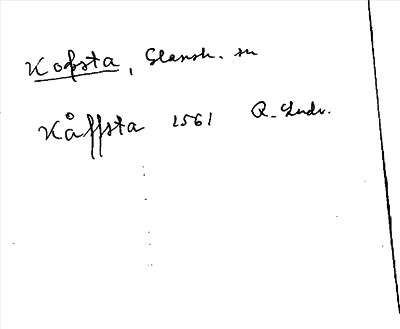 Kofsta, Glansh. sn
Kåffsta 1561 R. Ludv.